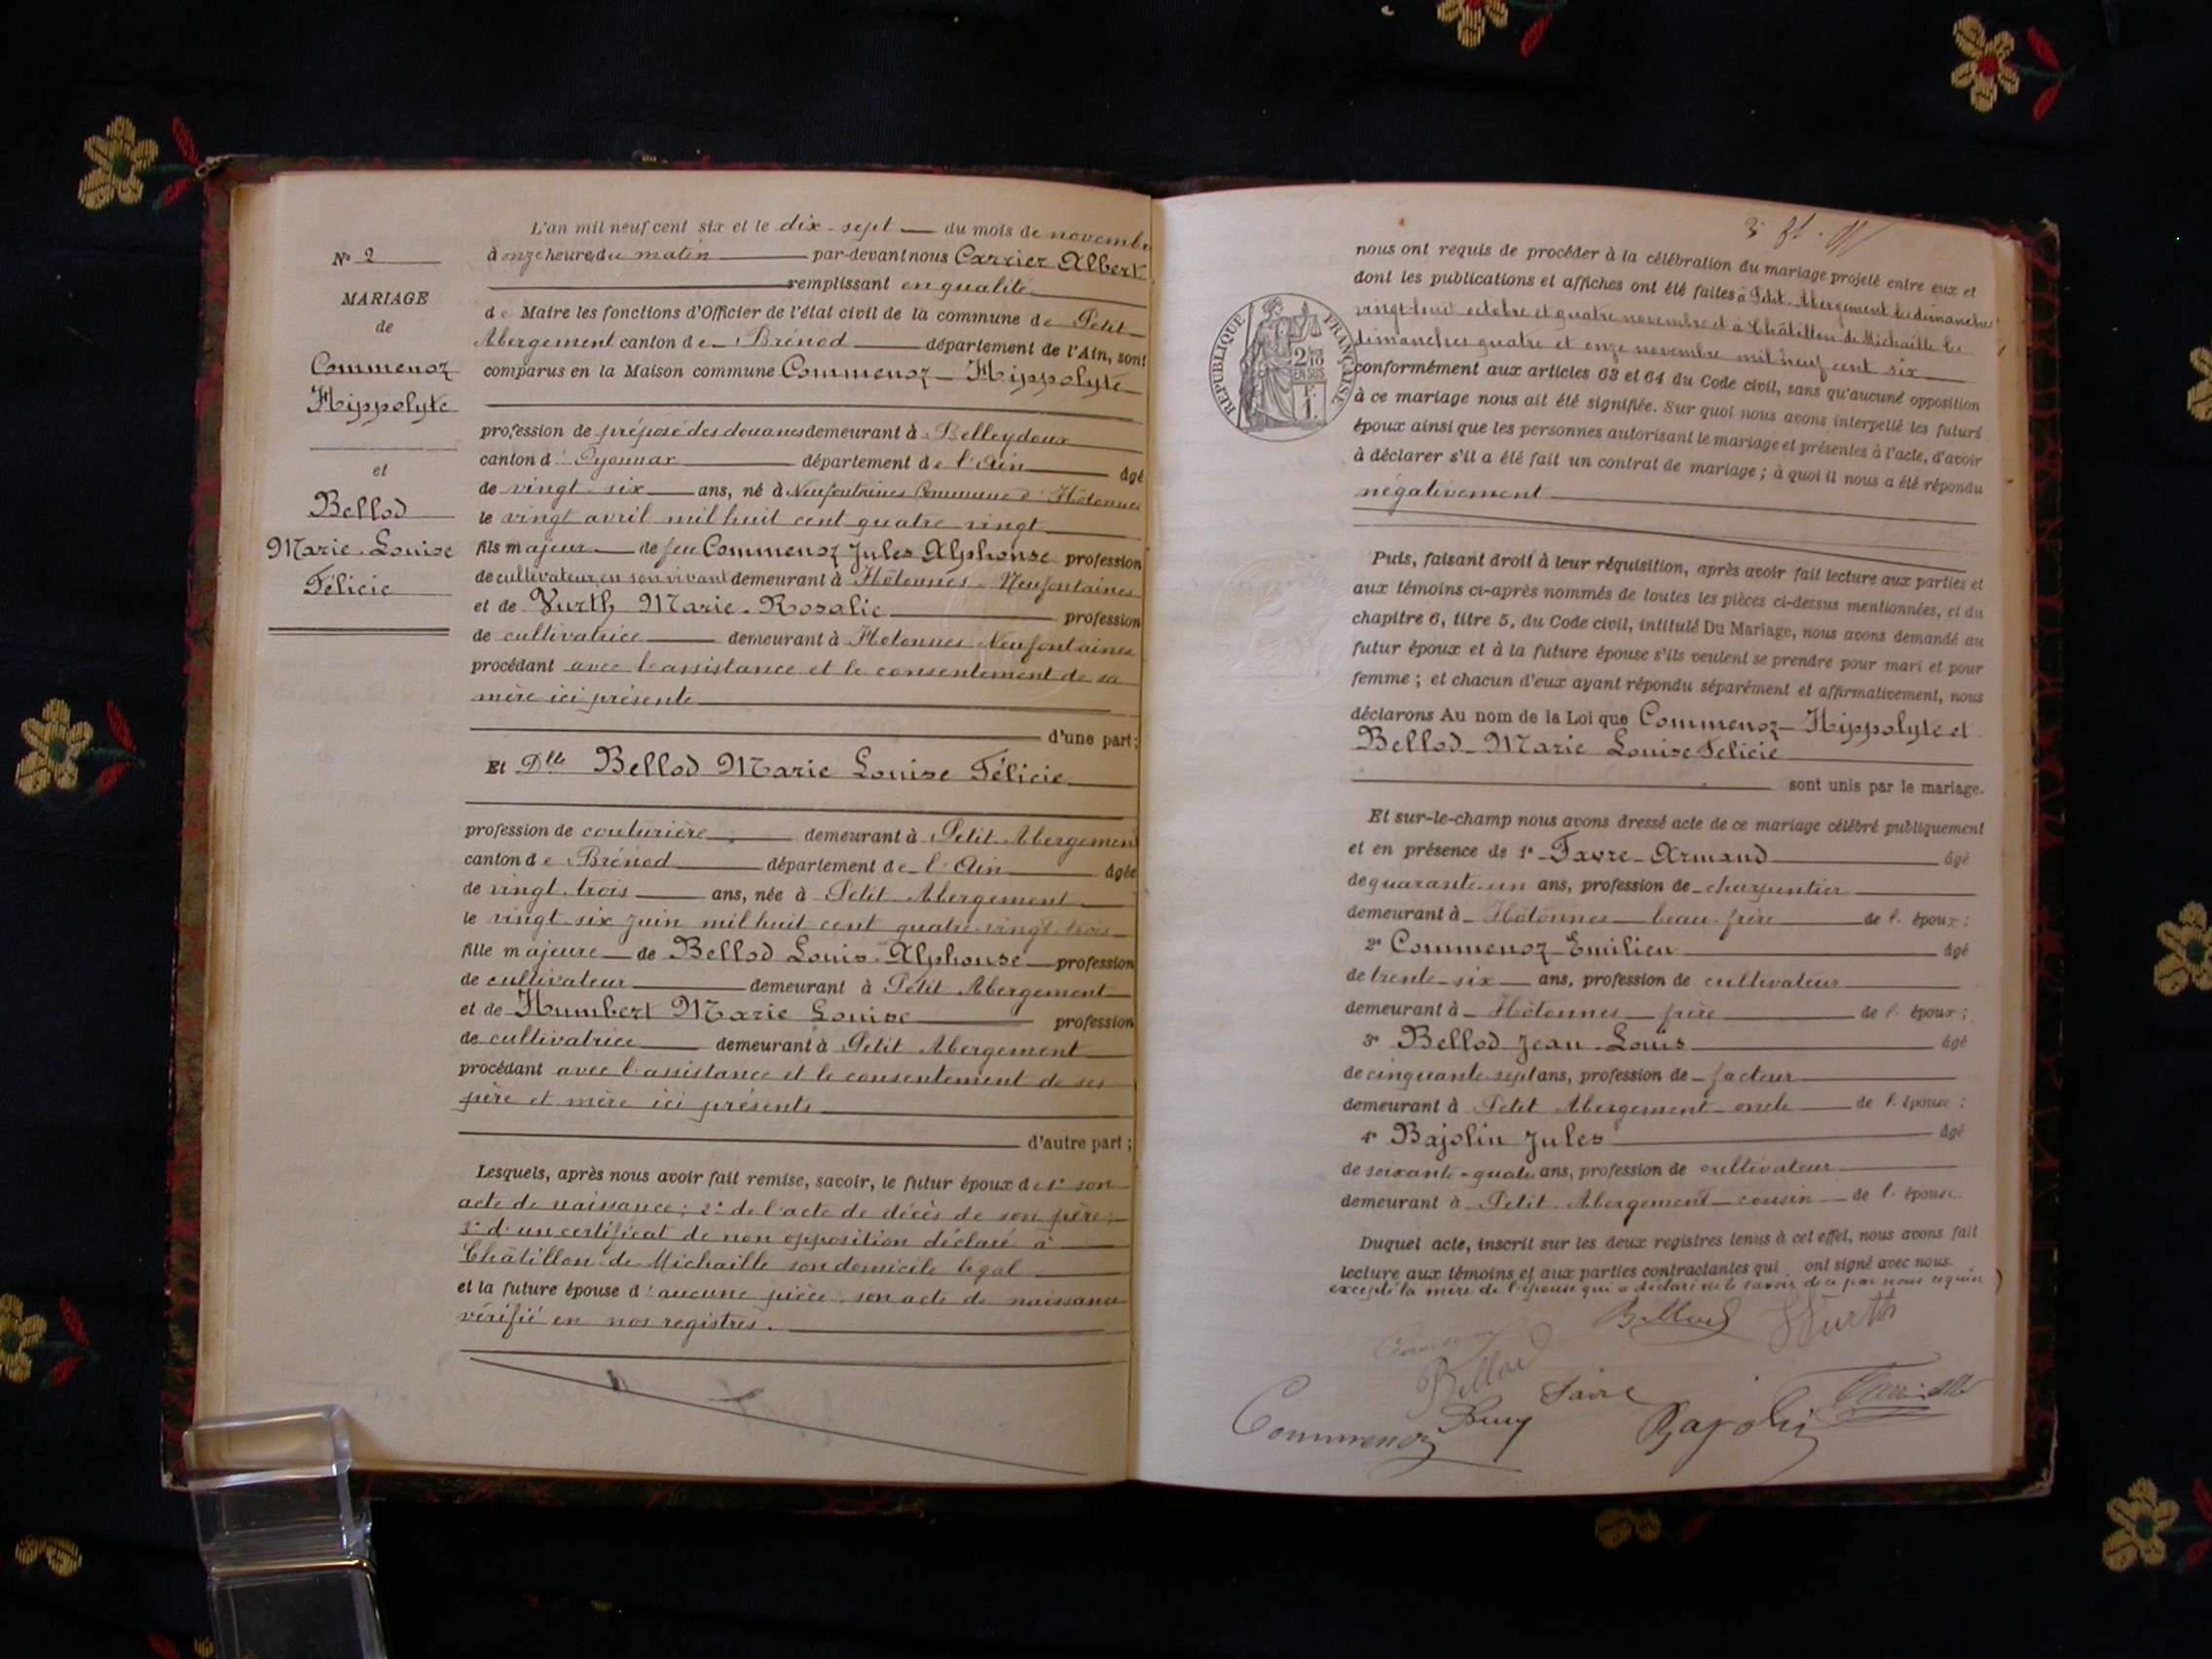 N° 2
MARIAGE
de
Commenoz
Hippolyte
et
Bellod
Marie-Louise
Félicie
L'an mil neuf cent six et le dix-sept du mois de novembre
à onze heures du matin par-devant nous Carrier Albert
remplissant en qualité
de Maire les fonctions d'Officier de l'état civil de la commune de Petit
Abergement canton de Brénod département de l'Ain, sont
comparus en la Maison commune Commenoz Hippolyte
profession de préposé des douanes demeurant à Belleydoux
canton d'Oyonnax département de l'Ain âgé
de vingt-six ans, né à Neufontaines Commune d'Hotonnes
le vingt avril mil huit cent quatre vingt
fils majeur de feu Commenoz Jules Alphonse profession
de cultivateur en son vivant demeurant à Hotonnes-Neufontaines
et de Vurth Marie-Rosalie profession
de cultivatrice demeurant à Hotonnes Neufontaines
procédant avec l'assistance et le consentement de sa
mère ici présente
d'une part;
Et Dlle Bellod Marie Louise Félicie
profession de couturière demeurant à Petit Abergement
canton de Brénod département de l'Ain âgée
de vingt-trois ans, née à Petit Abergement
le vingt-six Juin mil huit cent quatre-vingt-trois
fille majeure de Bellod Louis-Alphonse profession
de cultivateur demeurant à Petit Abergement
et de Humbert Marie Louise profession
de cultivatrice demeurant à Petit Abergement
procédant avec l'assistance et le consentement de ses
père et mère ici présents
d'autre part;
Lesquels, après nous avoir fait remise, savoir, le futur époux de 1° son
acte de naissance; 2° de l'acte de décès de son père;
3° d'un certificat de non opposition déclaré à
Châtillon-de-Michaille son domicile légal
et la future épouse d'aucune pièce, son acte de naissance
vérifié en nos registres.
nous ont requis de procéder à la célébration du mariage projeté entre eux et
dont les publications et affiches ont été faites à Petit-Abergement les dimanches
vingt-huit octobre et quatre novembre et à Châtillon de Michaille les
dimanches quatre et onze novembre mil neuf cent six
REPUBLIQUE FRANÇAISE
2/10 EN SUS
1 F.
conformément aux articles 63 et 64 du Code civil, sans qu'aucune opposition
à ce mariage nous ait été signifiée. Sur quoi nous avons interpellé les futurs
époux ainsi que les personnes autorisant le mariage et présentes à l'acte, d'avoir
à déclarer s'il a été fait un contrat de mariage; à quoi il nous a été répondu
négativement
Puis, faisant droit à leur réquisition, après avoir fait lecture aux parties et
aux témoins ci-après nommés de toutes les pièces ci-dessus mentionnées, et du
chapitre 6, titre 5, du Code civil, intitulé Du Mariage, nous avons demandé au
futur époux et à la future épouse s'ils veulent se prendre pour mari et pour
femme; et chacun d'eux ayant répondu séparément et affirmativement, nous
déclarons Au nom de la Loi que Commenoz Hippolyte et
Bellod Marie Louise Félicie
sont unis par le mariage.
Et sur-le-champ nous avons dressé acte de ce mariage célébré publiquement
et en présence de 1° Favre Armand âgé
de quarante-un ans, profession de charpentier
demeurant à Hotonnes beau-frère de l'époux;
2° Commenoz Emilien âgé
de trente-six ans, profession de cultivateur
demeurant à Hotonnes frère de l'époux;
3° Bellod Jean-Louis âgé
de cinquante-sept ans, profession de facteur
demeurant à Petit Abergement oncle de l'épouse;
4° Bajolin Jules âgé
de soixante-quatre ans, profession de cultivateur
demeurant à Petit Abergement cousin de l'épouse.
Duquel acte, inscrit sur les deux registres tenus à cet effet, nous avons fait
lecture aux témoins et aux parties contractantes qui ont signé avec nous.
excepté la mère de l'épouse qui a déclaré ne le savoir de ce par nous requis
Bellod Vurth
Bellod
Favre
Commenoz Bajolin